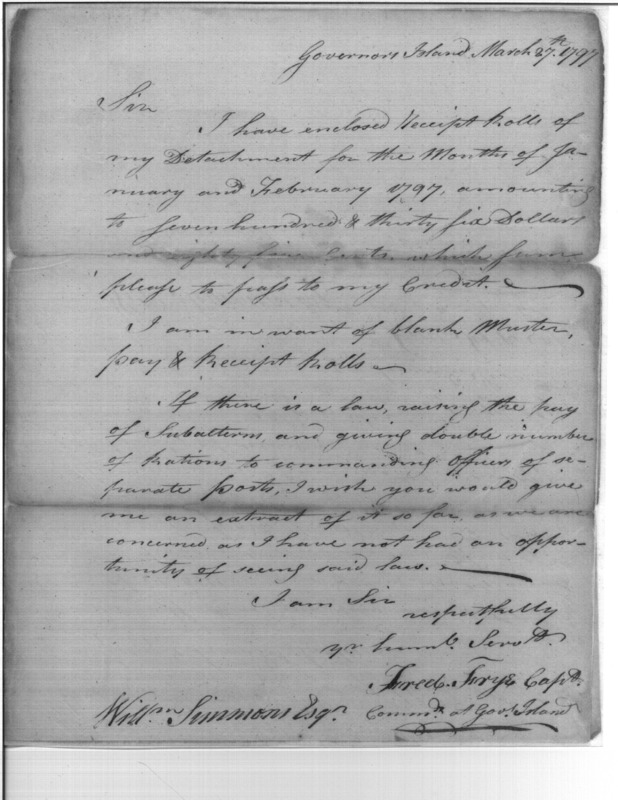 Governors Island March 27.th 1797
Sir
I have enclosed Receipt Rolls of
my Detachment for the Months of Ja-
nuary and February 1797, amounting
to Seven hundred & thirty six Dollars
and eighty five Cents, which sum
please to pass to my Credit.
I am in want of blank Muster,
pay & Receipt Rolls
If there is a law, raising the pay
of Subalterns, and giving double number
of Rations to commanding Officers of se-
parate posts, I wish you would give
me an extract of it so far, as we are
concerned, as I have not had an oppor-
tunity of seeing said law.
I am Sir
respectfully
yr. humb. Servt.
Fred. Frye Capt.
Commdt at Govs. Island
Willm Simmons Esqr.